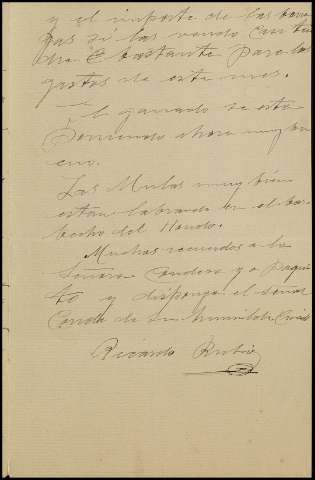 y el importe de las borre
gas si las vendo con ten
dre bastante para los
gastos de este mes.
El ganado se esta
Poniendo ahora muy bu
eno.
Las Mulas muy bien
estan labrando en el bar
becho del Hondo.
Muchos recuerdos a la
Señora Condesa y a Paqui
to y disponga el señor
Conde de su humilde Criado
Ricardo Rubio